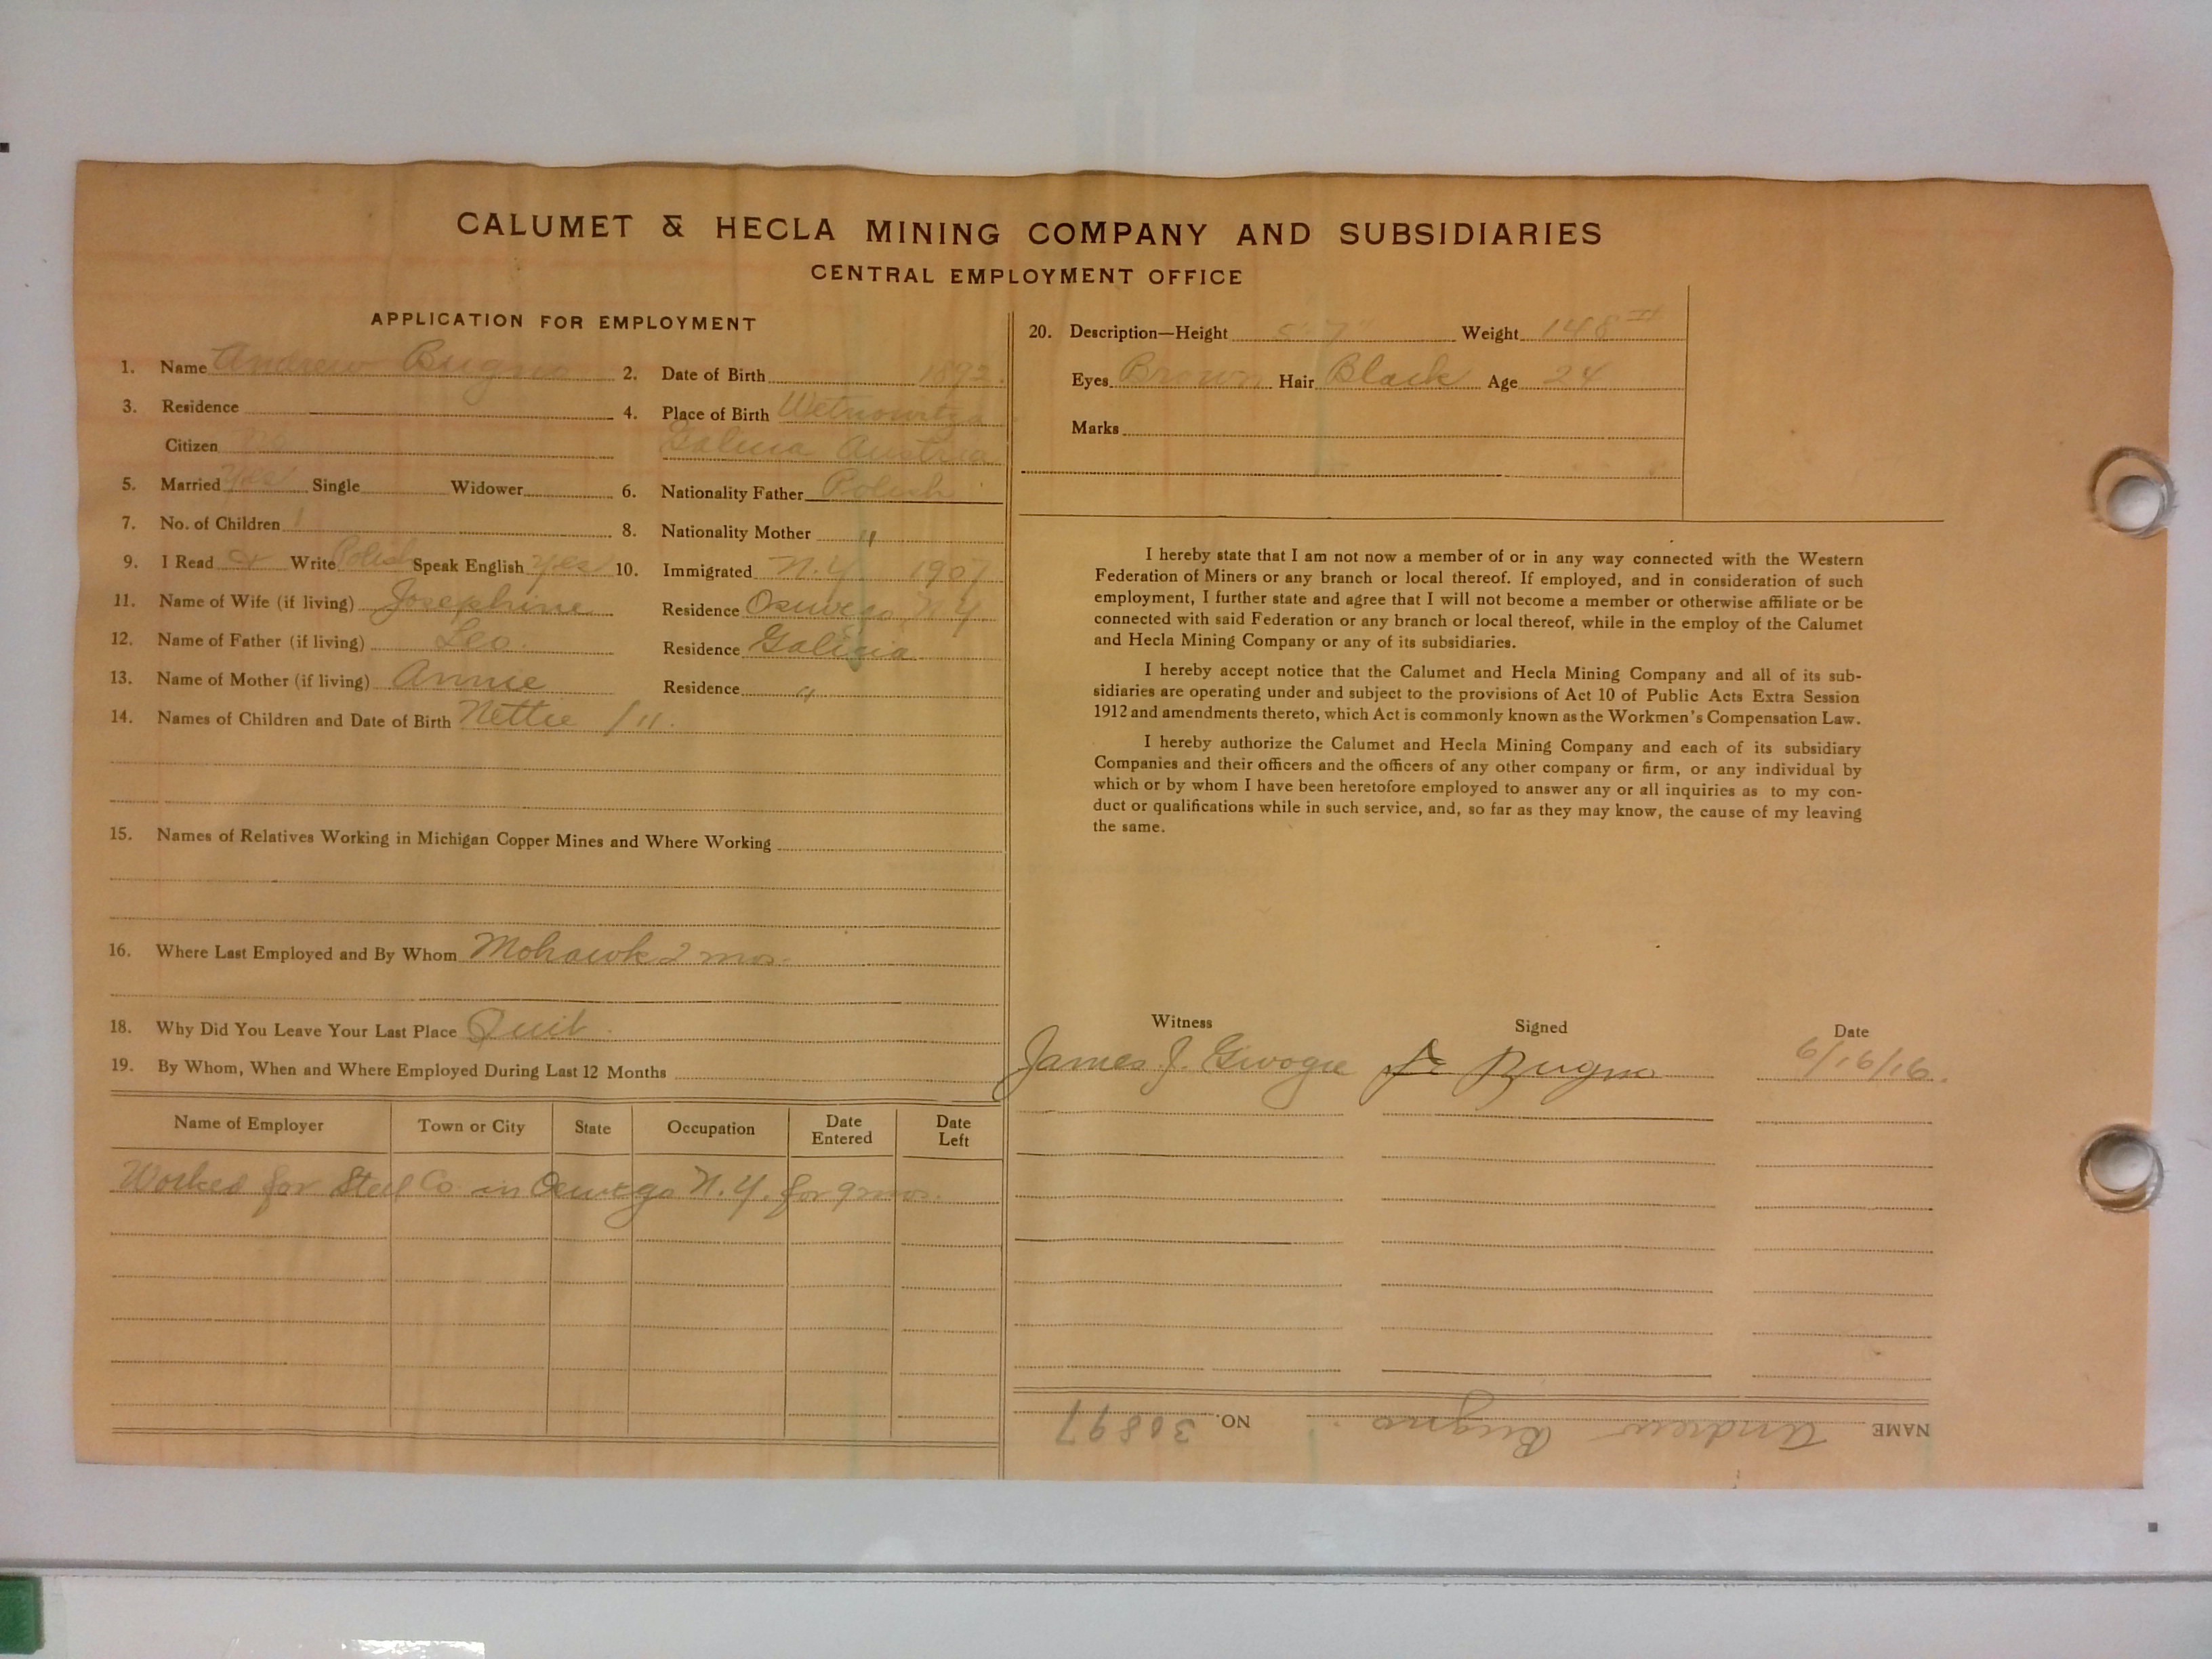 CALUMET & HECLA MINING COMPANY AND SUBSIDIARIES
CENTRAL EMPLOYMENT OFFICE
APPLICATION FOR EMPLOYMENT
1. Name Andrew Bugno 2. Date of Birth 1892
3. Residence 4. Place of Birth
Citizen No Galicia Austria
5. Married Yes Single Widower 6. Nationality Father Polish
7. No. of Children 1 8. Nationality Mother "
9. I Read & Write Polish Speak English Yes 10. Immigrated N.Y. 1907
11. Name of Wife (if living) Josephine Residence Oswego N.Y.
12. Name of Father (if living) Leo. Residence Galicia
13. Name of Mother (if living) Annie Residence "
14. Names of Children and Date of Birth Nettie
15. Names of Relatives Working in Michigan Copper Mines and Where Working
16. Where Last Employed and By Whom Mohawk 2 mos.
18. Why Did You Leave Your Last Place Quit.
19. By Whom, When and Where Employed During Last 12 Months
Name of Employer Town or City State Occupation Date Entered Date Left
Worked for Steel Co. in Oswego N.Y. for 9 mos.
20. Description—Height 5' 7" Weight 148
Eyes Brown Hair Black Age 24
Marks
I hereby state that I am not now a member of or in any way connected with the Western
Federation of Miners or any branch or local thereof. If employed, and in consideration of such
employment, I further state and agree that I will not become a member or otherwise affiliate or be
connected with said Federation or any branch or local thereof, while in the employ of the Calumet
and Hecla Mining Company or any of its subsidiaries.
I hereby accept notice that the Calumet and Hecla Mining Company and all of its sub-
sidiaries are operating under and subject to the provisions of Act 10 of Public Acts Extra Session
1912 and amendments thereto, which Act is commonly known as the Workmen's Compensation Law.
I hereby authorize the Calumet and Hecla Mining Company and each of its subsidiary
Companies and their officers and the officers of any other company or firm, or any individual by
which or by whom I have been heretofore employed to answer any or all inquiries as to my con-
duct or qualifications while in such service, and, so far as they may know, the cause of my leaving
the same.
Witness Signed Date
James J. Bugno 6/16/16.
NAME Andrew Bugno. NO. 30897